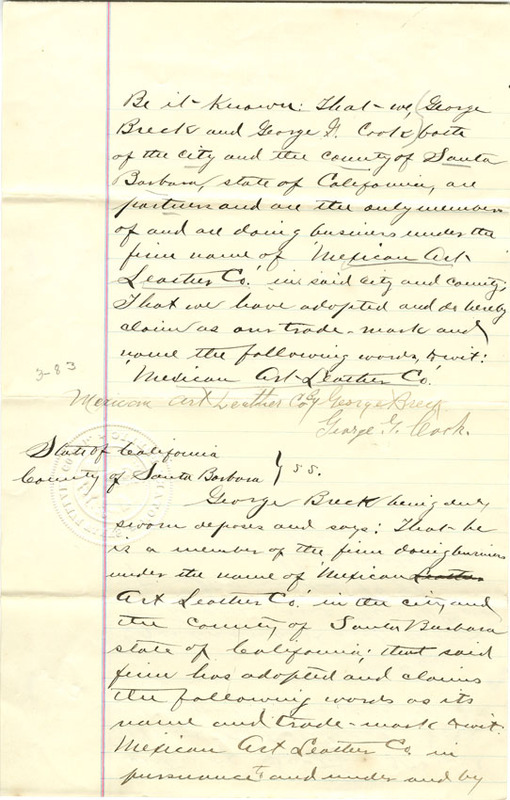 Be it Known: That we, (George
Breck and George G. Cook) both
of the city and the county of Santa
Barbara, state of California, are
partners and are the only members
of and are doing business under the
firm name of 'Mexican Art
Leather Co.' in said city and county;
That we have adopted and do hereby
claim as our trade-mark and
name the following words, to wit:
'Mexican Art Leather Co.'
3-83
Mexican Art Leather Co By George Breck
George G. Cook.
State of California
County of Santa Barbara } SS.
George Breck being duly
sworn deposes and says: That he
is a member of the firm doing business
under the name of 'Mexican Leather
Art Leather Co.' in the city and
the County of Santa Barbara
state of California; that said
firm has adopted and claims
the following words as its
name and trade-mark to wit:
Mexican Art Leather Co. in
pursuance to and under and by